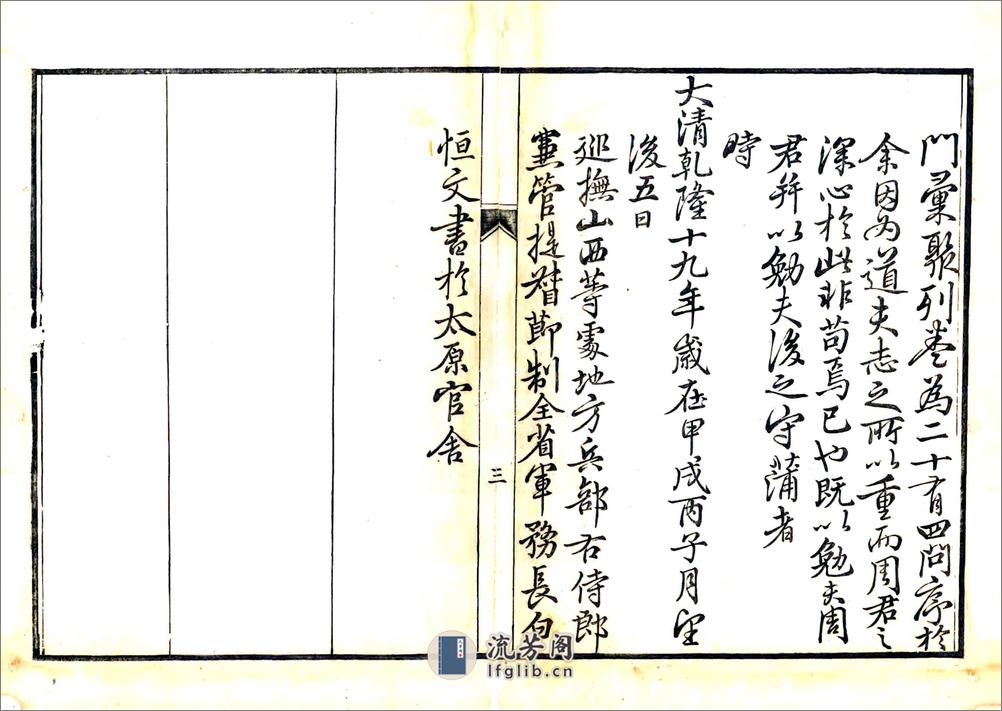 門彙聚列卷為二十有四問序於
余因為道夫志之所以重而周君之
深心於此非苟焉已也既以勉夫周
君并以勉夫後之守蒲者
時
大清乾隆十九年歲在甲戌丙子月望
後五日
巡撫山西等處地方兵部右侍郎
兼管提督節制全省軍務長白
恒文書於太原官舍
三
流芳阁
lfglib.cn